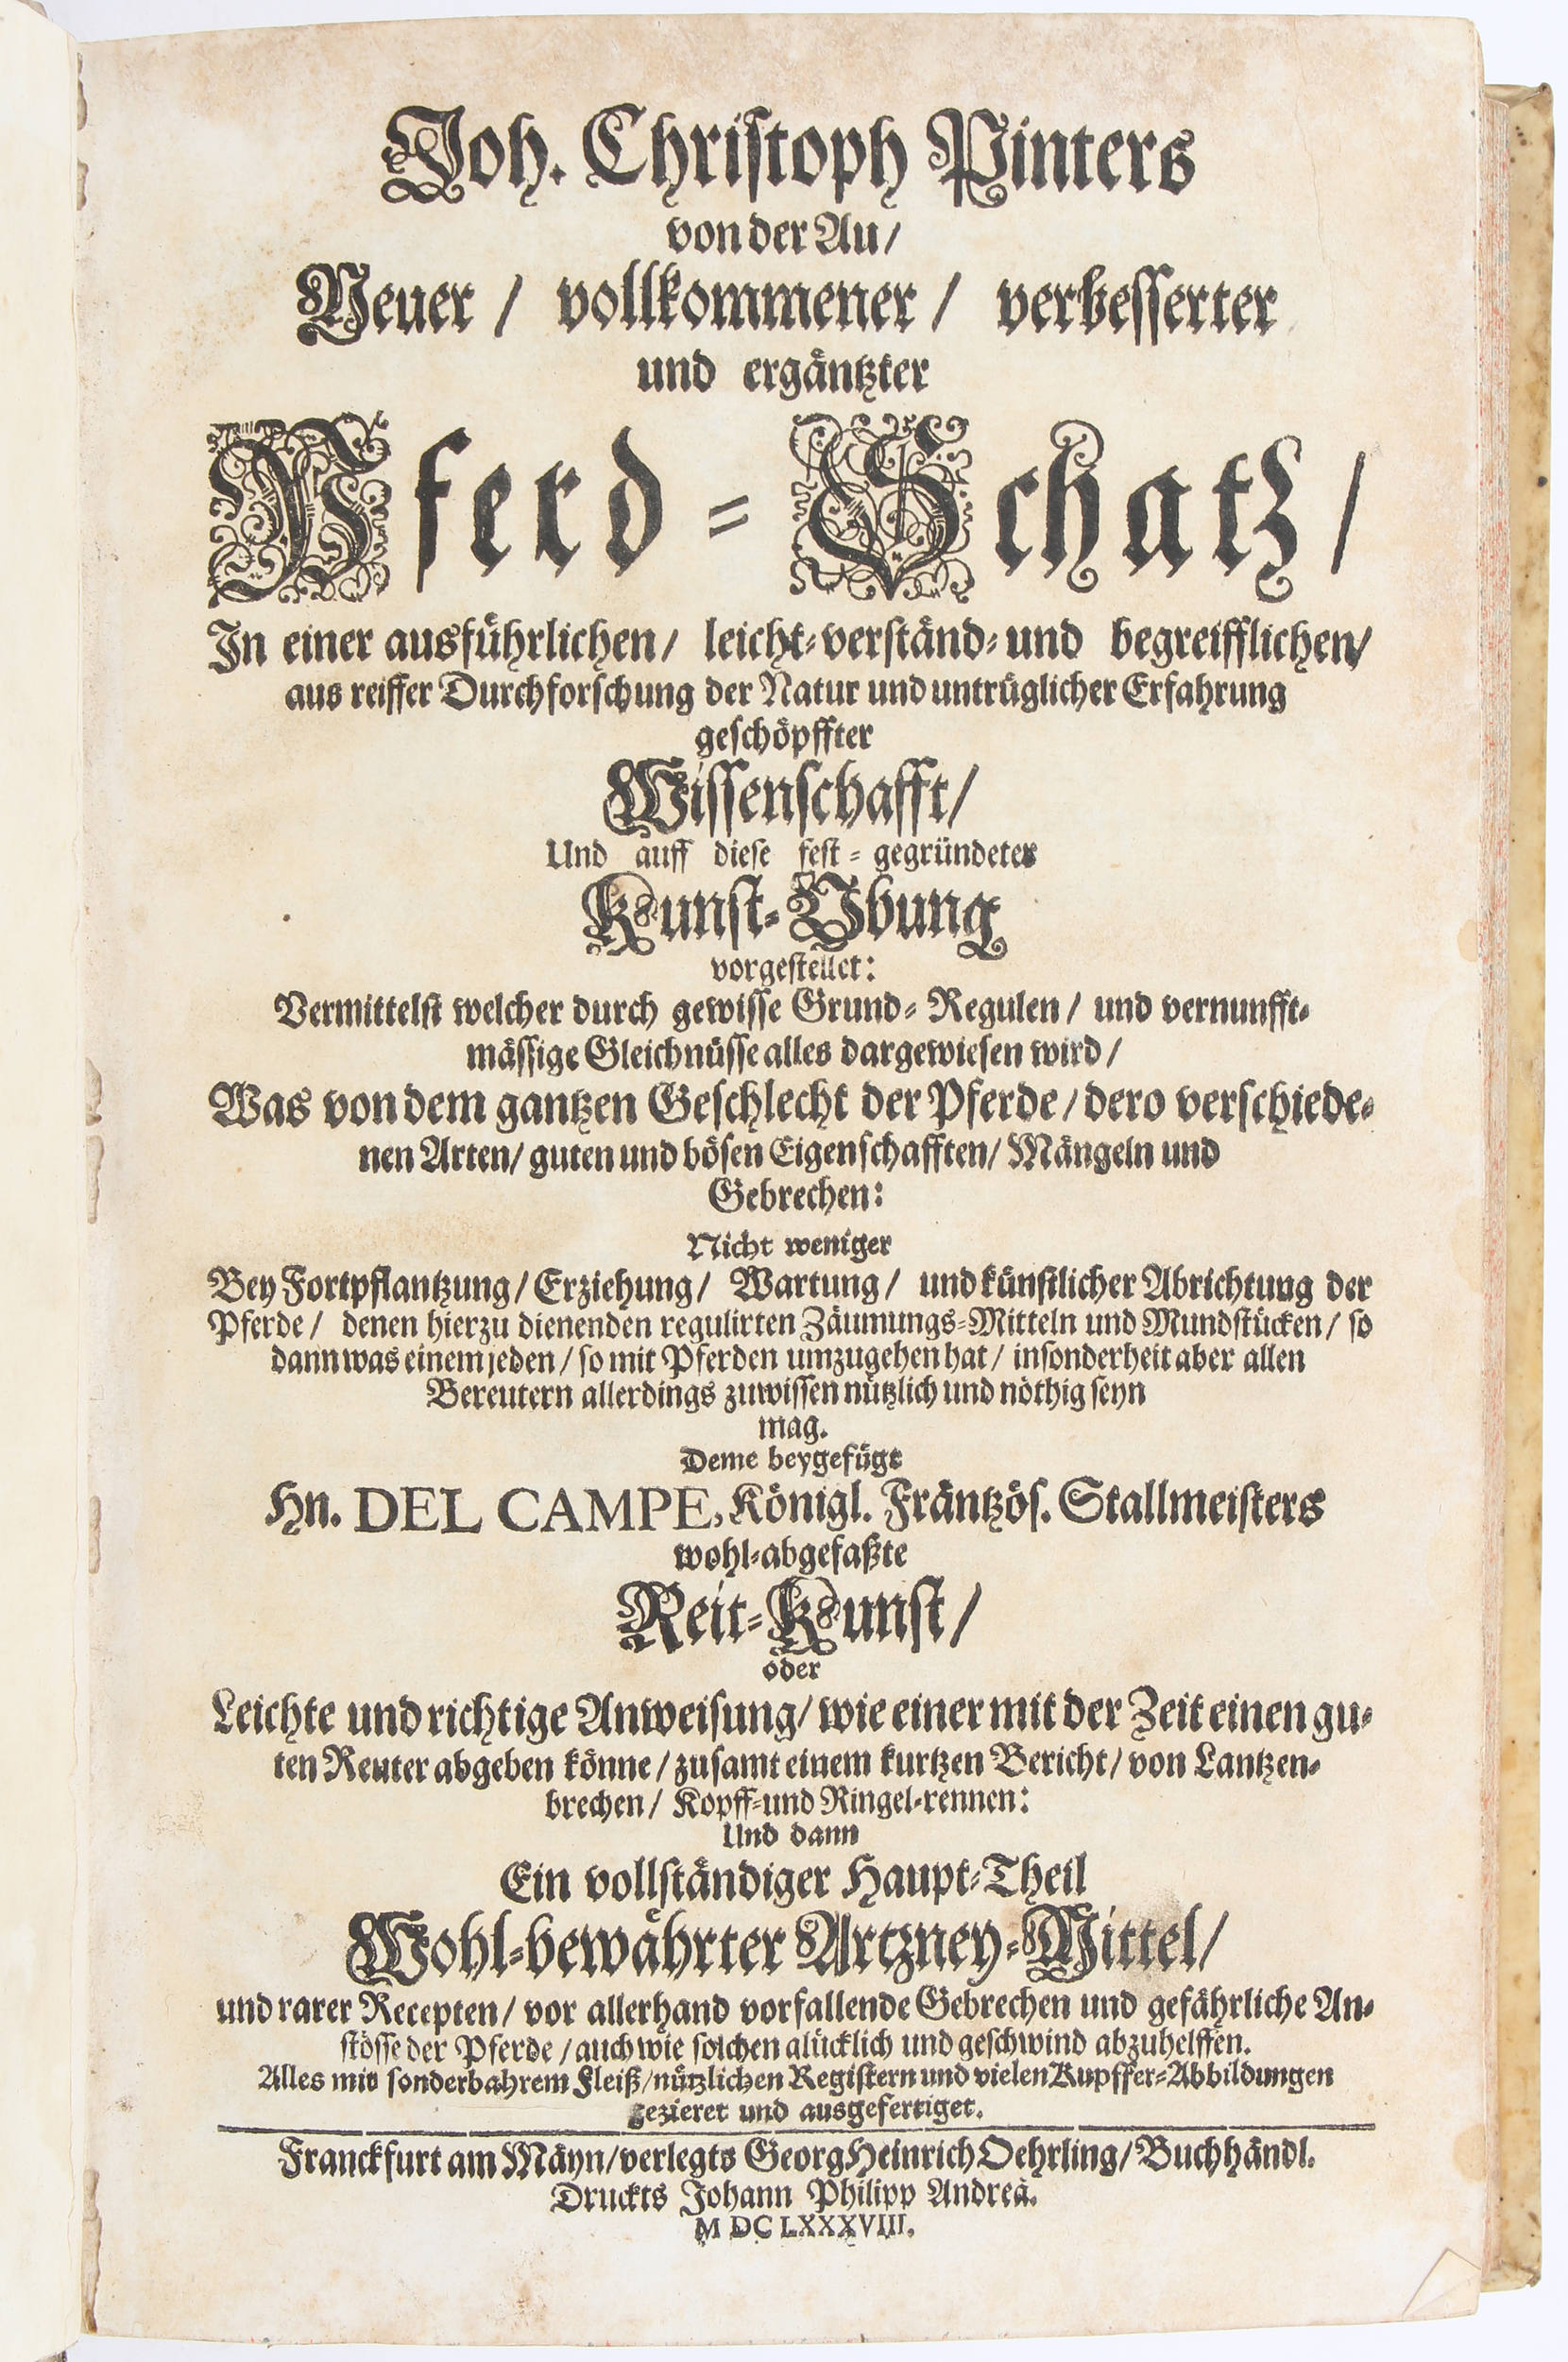 Joh. Christoph Pinters
von der Au/
Neuer / vollkommener / verbesserter
und ergäntzter
Pferd-Schatz/
In einer ausführlichen/ leicht-verständ-und begreifflichen/
aus reiffer Durchforschung der Natur und untrüglicher Erfahrung
geschöpffter
Wissenschafft/
Und auff diese fest-gegründeter
Kunst-Ubung
vorgestellet:
Vermittelst welcher durch gewisse Grund-Regulen / und vernunfft-
mässige Gleichnüsse alles dargewiesen wird /
Was von dem gantzen Geschlecht der Pferde / dero verschiede-
nen Arten/ guten und bösen Eigenschafften/ Mängeln und
Gebrechen:
Nicht weniger
Bey Fortpflantzung/ Erziehung/ Wartung/ und künstlicher Abrichtung der
Pferde / denen hierzu dienenden regulirten Zäumungs-Mitteln und Mundstücken / so
dann was einem jeden / so mit Pferden umzugehen hat / insonderheit aber allen
Bereutern allerdings zuwissen nützlich und nöthig seyn
mag.
Deme beygefügt
Hn. DEL CAMPE, Königl. Fräntzös. Stallmeisters
wohl-abgefaßte
Reit-Kunst/
oder
Leichte und richtige Anweisung/ wie einer mit der Zeit einen gu-
ten Reuter abgeben könne / zusamt einem kurtzen Bericht/ von Lantzen-
brechen/ Kopff-und Ringel-rennen:
Und dann
Ein vollständiger Haupt-Theil
Wohl-bewährter Artzney-Mittel/
und rarer Recepten/ vor allerhand vorfallende Gebrechen und gefährliche An-
stösse der Pferde / auch wie solchen glücklich und geschwind abzuhelffen.
Alles mit sonderbahrem Fleiß/ nützlichen Registern und vielen Kupffer-Abbildungen
gezieret und ausgefertiget.
Franckfurt am Mäyn/verlegts Georg Heinrich Oehrling/ Buchhändl.
Druckts Johann Philipp Andreä.
M DC LXXXVIII.